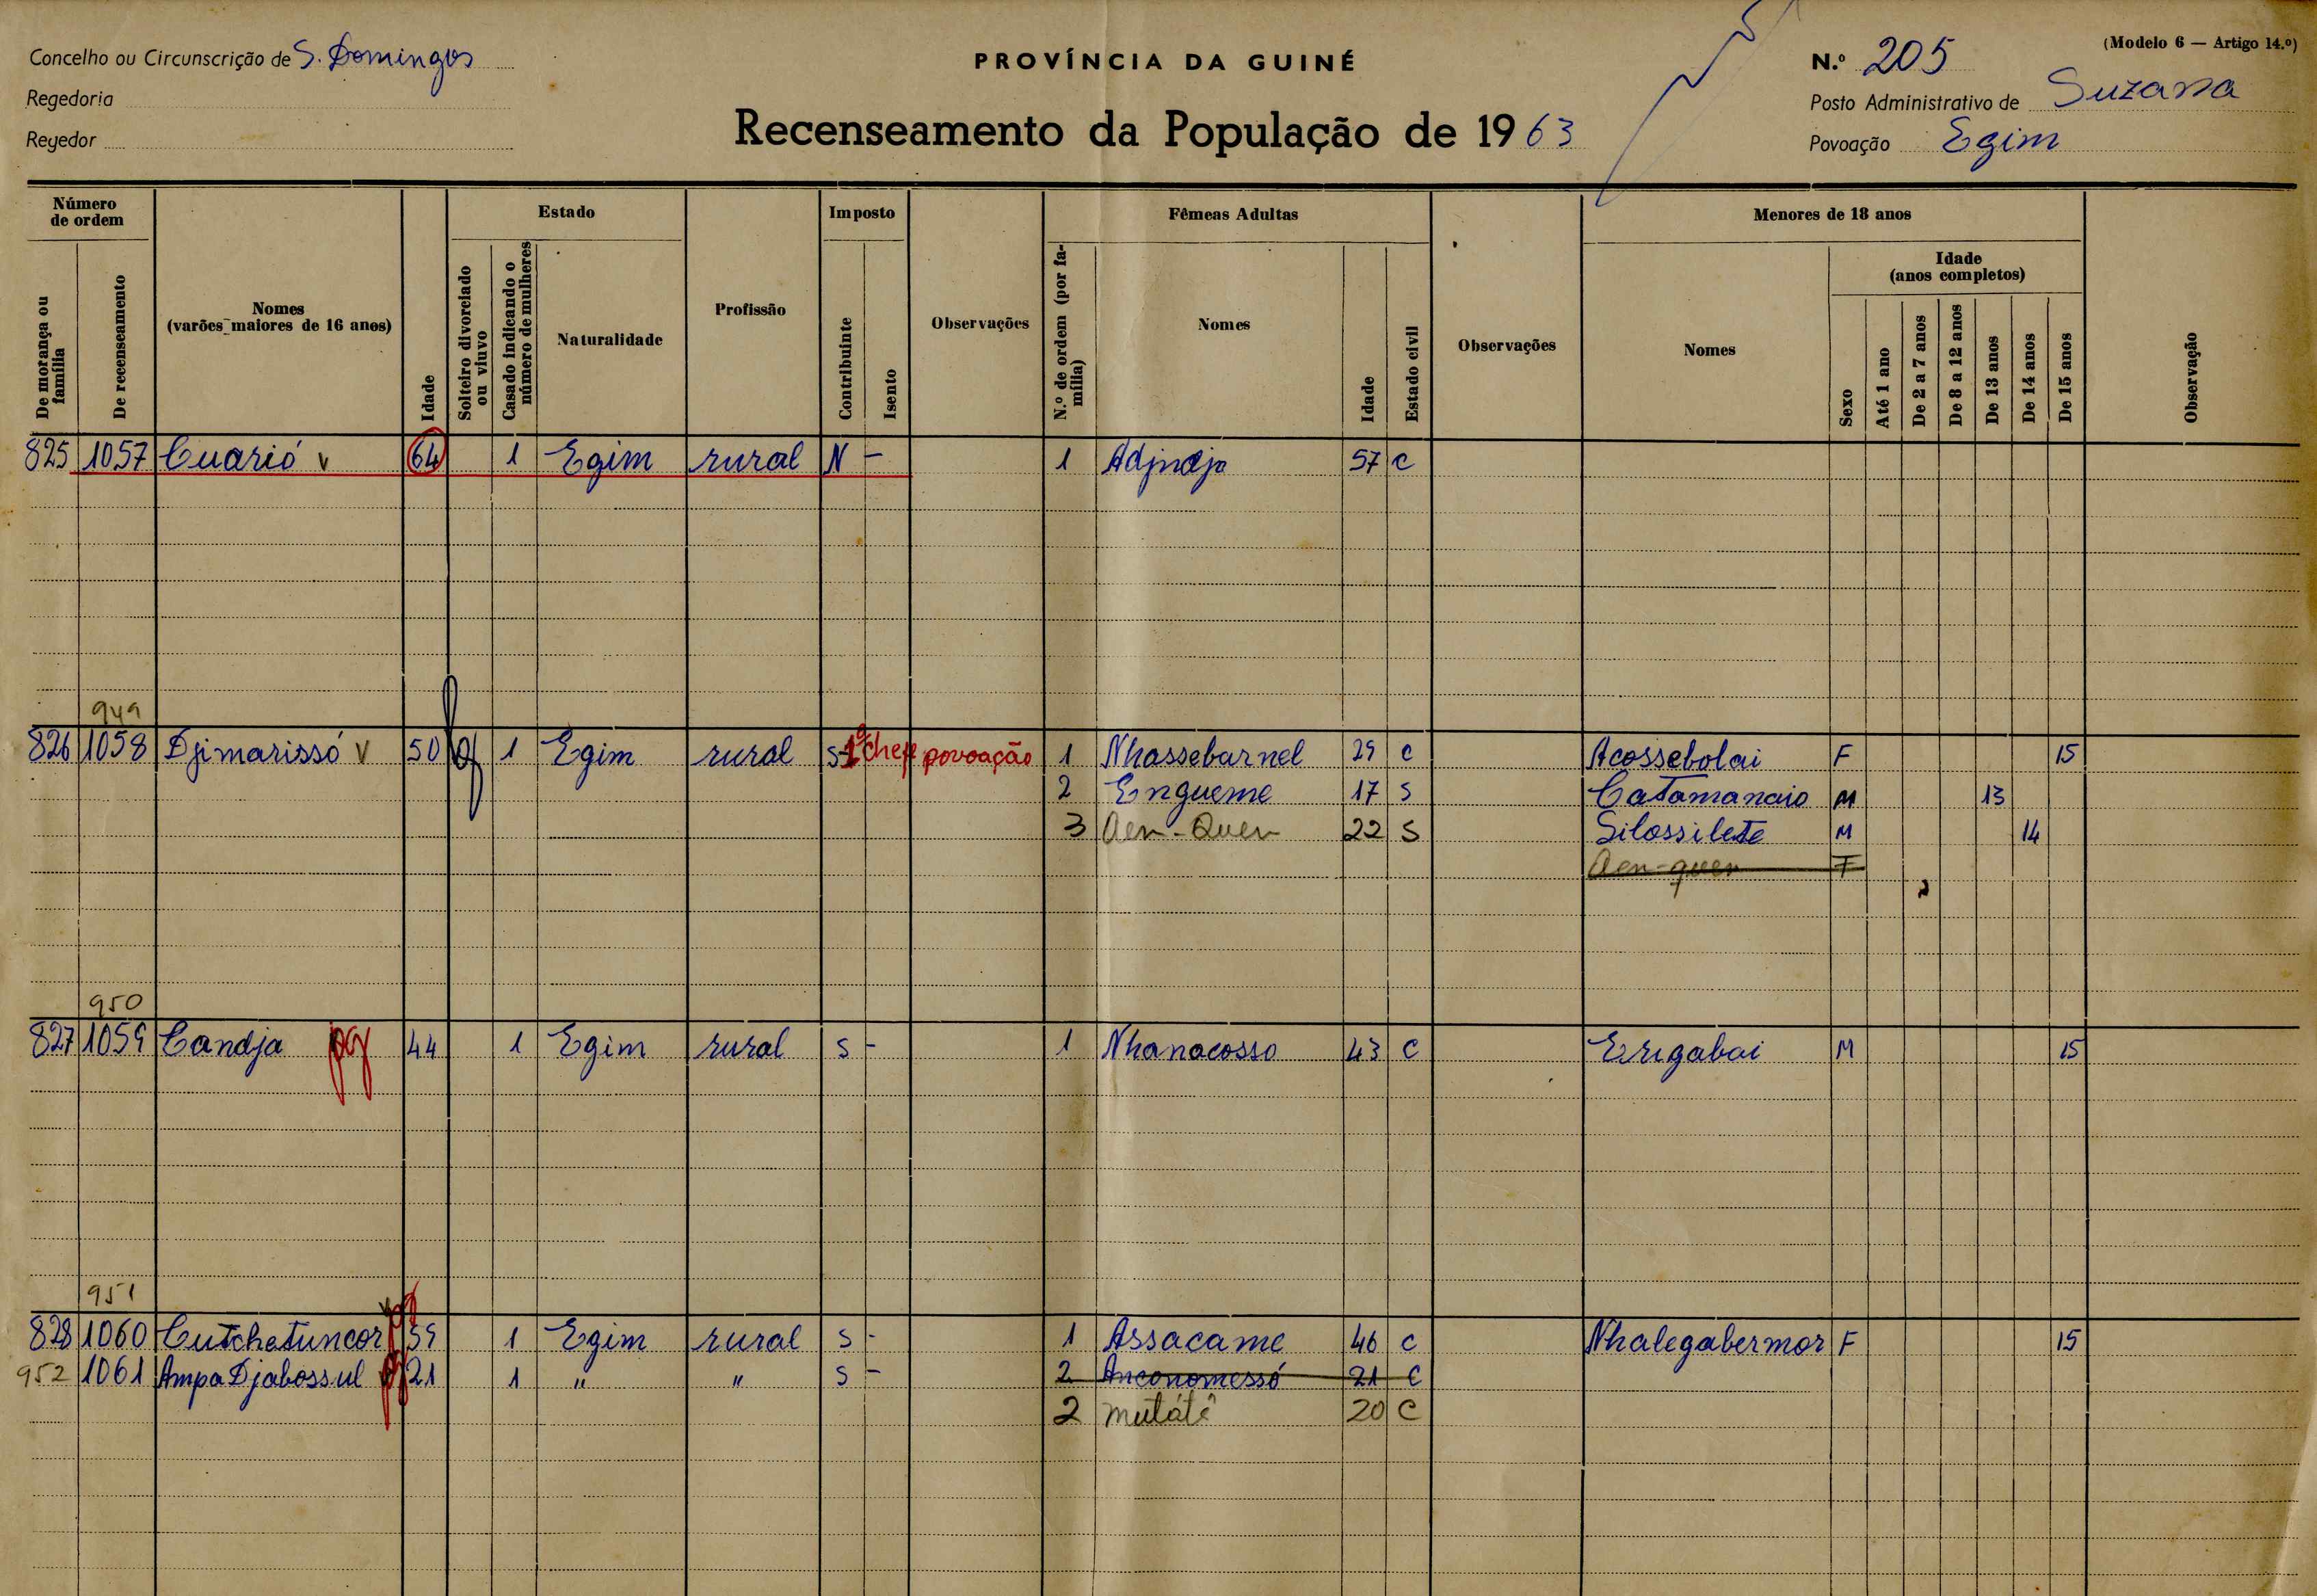 (Modelo 6 — Artigo 14.º)
Concelho ou Circunscrição de S. Domingos
PROVÍNCIA DA GUINÉ
N.º 205
Regedoria
Posto Administrativo de Suzana
Recenseamento da População de 1963
Regedor
Povoação Egim
Número de ordem
Estado
Imposto
Fêmeas Adultas
Menores de 18 anos
De morança ou família
De recenseamento
Nomes (varões maiores de 16 anos)
Idade
Solteiro divorciado ou viuvo
Casado indicando o número de mulheres
Naturalidade
Profissão
Contribuinte
Isento
Observações
N.º de ordem (por família)
Nomes
Idade
Estado civil
Observações
Nomes
Sexo
Idade (anos completos)
Até 1 ano
De 2 a 7 anos
De 8 a 12 anos
De 13 anos
De 14 anos
De 15 anos
Observação
825 1057 Cuarió v 64 1 Egim rural N - 1 Adjndja 57 C
949
826 1058 Djimarissó v 50 1 Egim rural S - 1º Chefe povoação 1 Nhassebarnel 29 C Acossebolai F 15
2 Engueme 17 S Catamanaio M 13
3 Aen-Quen 22 S Silossilete M 14
Aen-quen F 2
950
827 1059 Candja pg 44 1 Egim rural S - 1 Nhanacosso 43 C Erigabai M 15
951
828 1060 Cutchatuncor 59 1 Egim rural S - 1 Assacame 46 C Nhalegabermor F 15
952 1061 Ampa Djabossul 21 1 " " S - 2 Anconomessó 21 C
2 mutátê 20 C